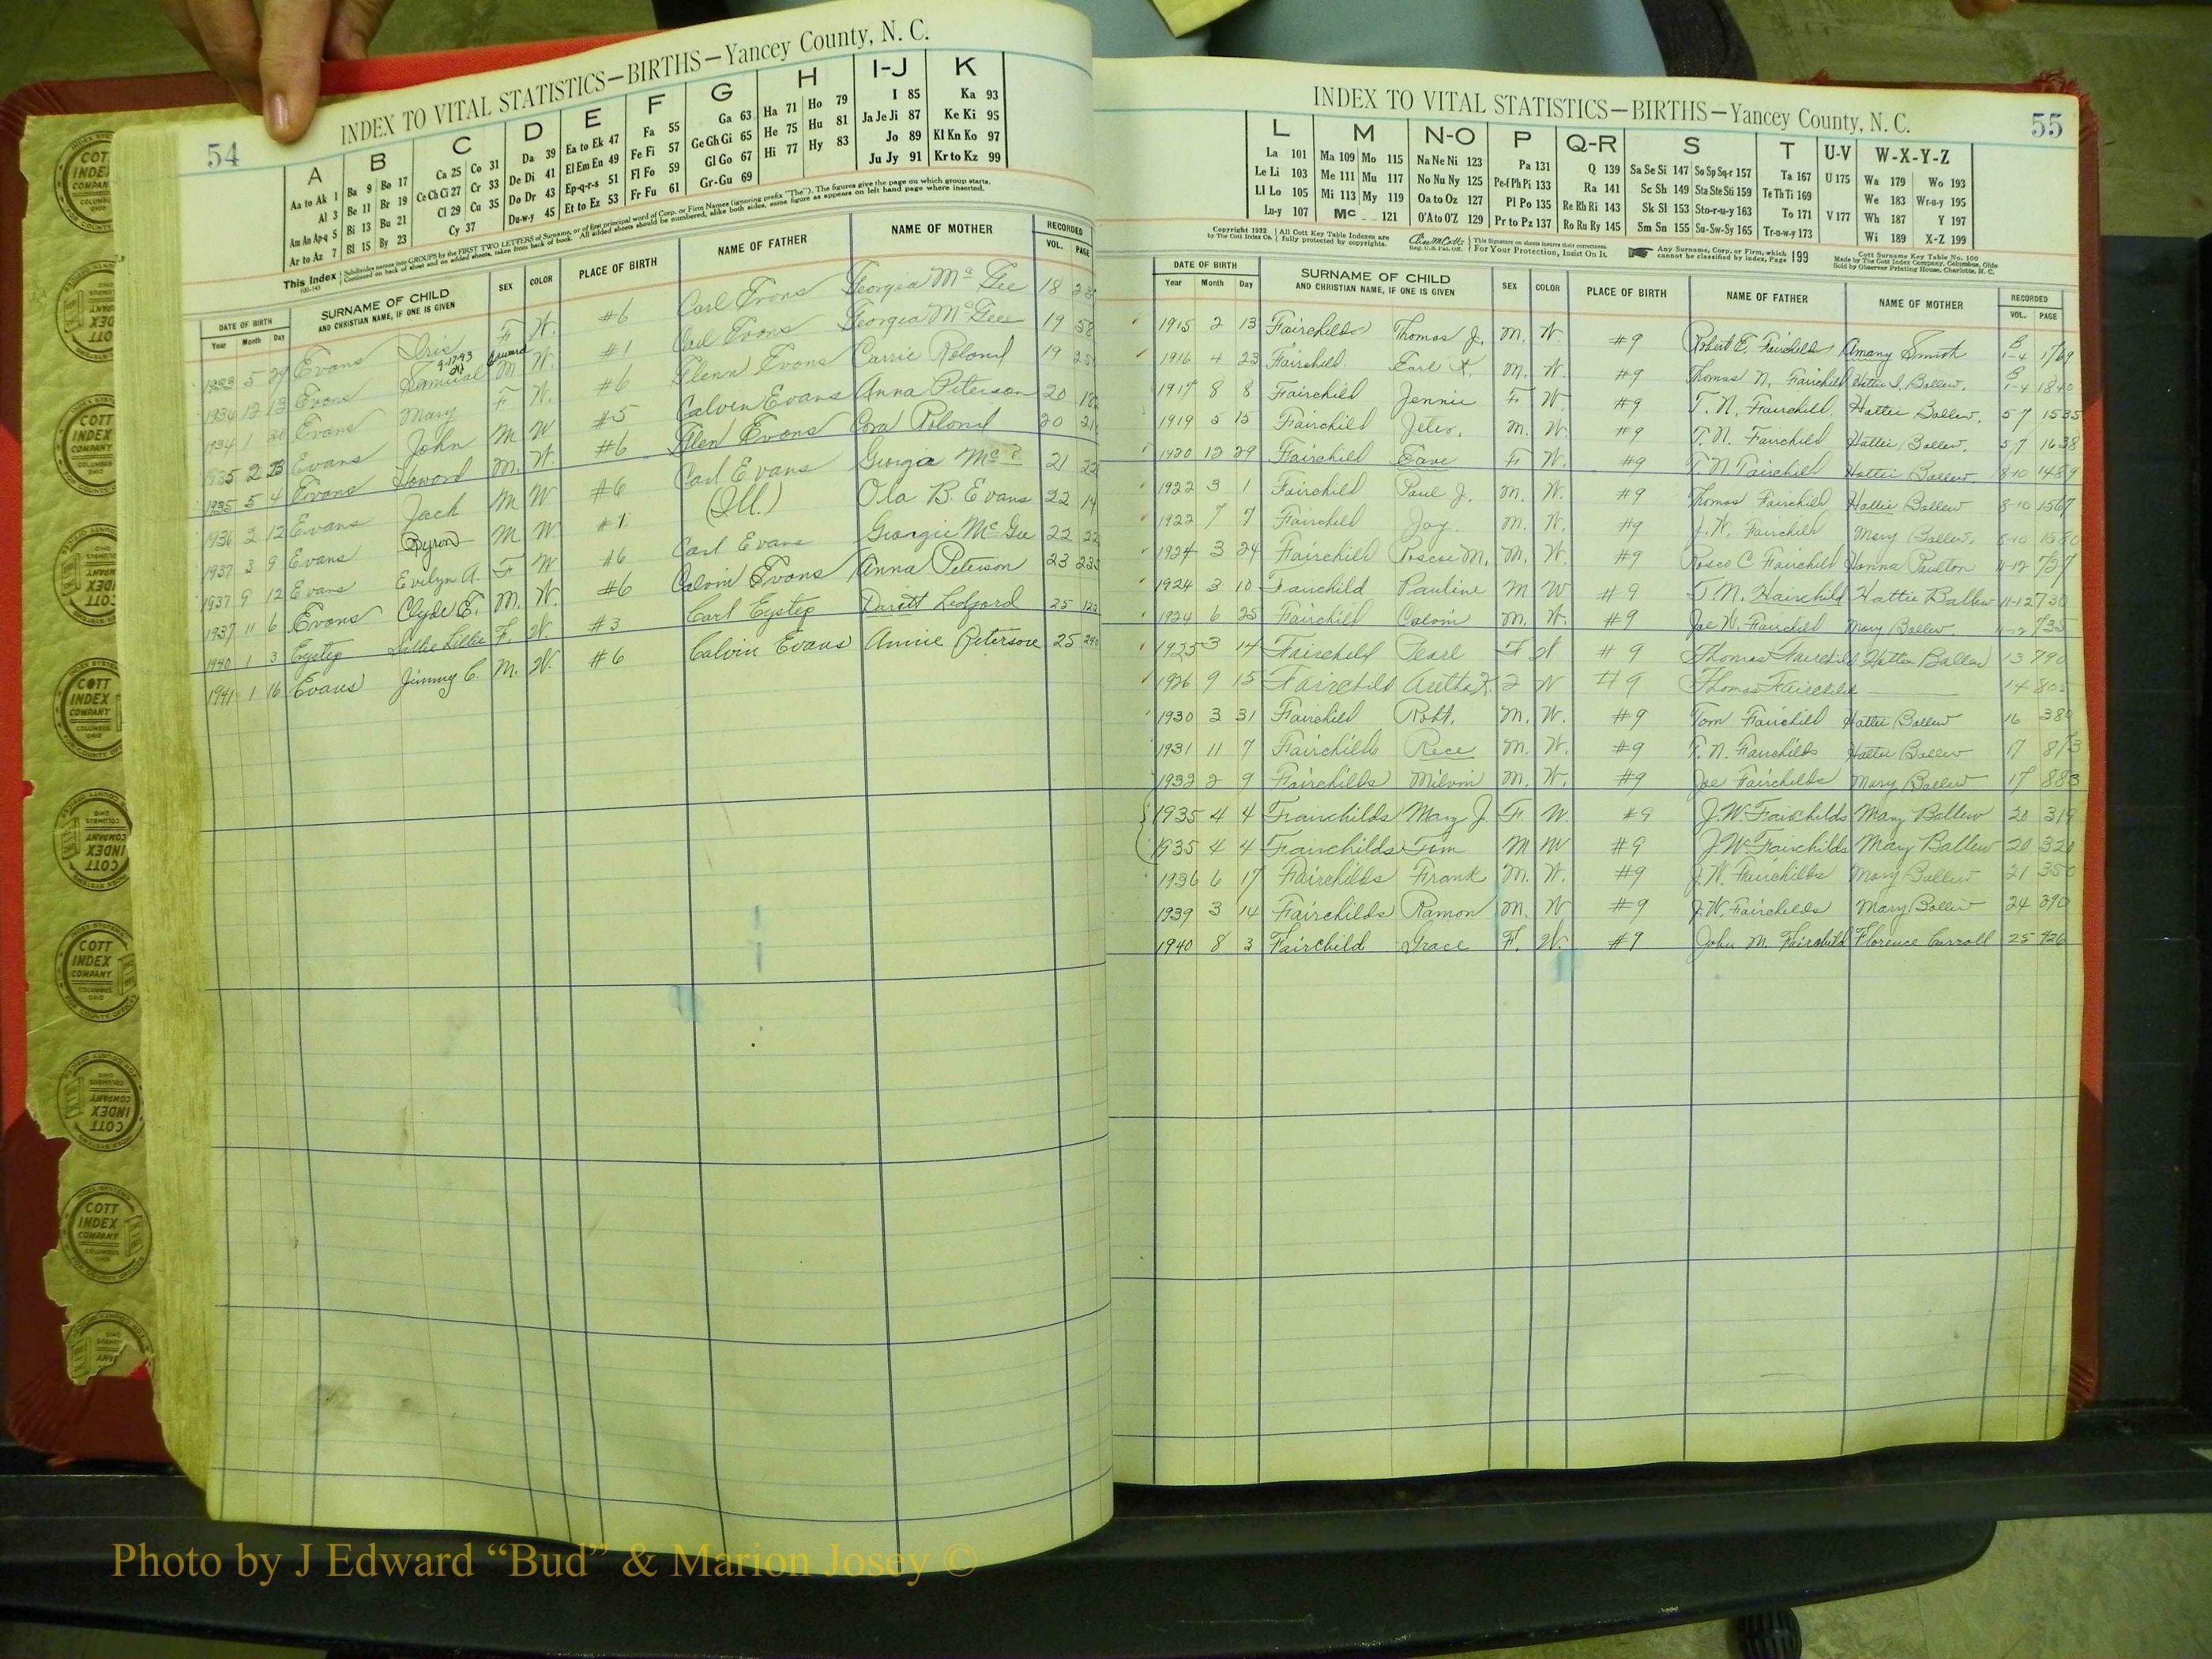 54
INDEX TO VITAL STATISTICS—BIRTHS—Yancey County, N. C.
A B C D E F G H I-J K
Aa to Ak 1 Ba 9 Bo 17 Ca 25 Co 31 Da 39 Ea to Ek 47 Fa 55 Ga 63 Ha 71 Ho 79 I 85 Ka 93
Al 3 Be 11 Br 19 Ce Ch Ci 27 Cr 33 De Di 41 El Em En 49 Fe Fi 57 Ge Gh Gi 65 He 75 Hu 81 Ja Je Ji 87 Ke Ki 95
Am An Ap-q 5 Bi 13 Bu 21 Cl 29 Cu 35 Do Dr 43 Ep-q-r-s 51 Fl Fo 59 Gl Go 67 Hi 77 Hy 83 Jo 89 Kl Kn Ko 97
Ar to Az 7 Bl 15 By 23 Cy 37 Du-w-y 45 Et to Ez 53 Fr Fu 61 Gr-Gu 69 Ju Jy 91 Kr to Kz 99
This Index Subdivides names into GROUPS by the FIRST TWO LETTERS of Surname, or of first principal word of Corp. or Firm Names (ignoring prefix "The"). The figures give the page on which group starts.
Continued on back of sheet and on added sheets, taken from back of book. All added sheets should be numbered, alike both sides, same figure as appears on left hand page where inserted.
DATE OF BIRTH SURNAME OF CHILD SEX COLOR PLACE OF BIRTH NAME OF FATHER NAME OF MOTHER RECORDED
Year Month Day AND CHRISTIAN NAME, IF ONE IS GIVEN VOL. PAGE
1933 5 29 Evans Iris F W. #6 Carl Evans Georgia McGee 18
1934 12 13 Evans Samuel Edward M W. #1 Carl Evans Georgia McGee 19 58
1934 1 Evans Mary F W. #6 Glenn Evans Carrie Roland 19
1935 2 23 Evans John M W #5 Calvin Evans Anna Peterson 20
1935 5 4 Evans Howard M. W. #6 Glen Evans Cora Roland 20
1936 2 12 Evans Jack M W #6 Carl Evans Georgia Mc ? 21
1937 3 9 Evans Byron M W #1 (Ill.) Ola B. Evans 22 14
1937 9 12 Evans Evilyn A. F W #6 Carl Evans Georgie McGee 22
1937 11 6 Evans Clyde E. M. W. #6 Calvin Evans Anna Peterson 23
1940 1 3 Eystep Lillie F. W. #3 Carl Eystep Ledford 25
1941 1 16 Evans Jimmy C. M. W. #6 Calvin Evans Annie Peterson 25
INDEX TO VITAL STATISTICS—BIRTHS—Yancey County, N. C.
55
L M N-O P Q-R S T U-V W-X-Y-Z
La 101 Ma 109 Mo 115 Na Ne Ni 123 Pa 131 Q 139 Sa Se Si 147 So Sp Sq-r 157 Ta 167 U 175 Wa 179 Wo 193
Le Li 103 Me 111 Mu 117 No Nu Ny 125 Pe-f Ph Pi 133 Ra 141 Sc Sh 149 Sta Ste Sti 159 Te Th Ti 169 We 183 Wr-u-y 195
Ll Lo 105 Mi 113 My 119 Oa to Oz 127 Pl Po 135 Re Rh Ri 143 Sk Sl 153 Sto-r-u-y 163 To 171 V 177 Wh 187 Y 197
Lu-y 107 Mc 121 O'A to O'Z 129 Pr to Pz 137 Ro Ru Ry 145 Sm Sn 155 Su-Sw-Sy 165 Tr-u-w-y 173 Wi 189 X-Z 199
Copyright 1932 by The Cott Index Co. All Cott Key Table Indexes are fully protected by copyrights. This Signature on sheets insures their correctness. For Your Protection, Insist On It. Any Surname, Corp. or Firm, which cannot be classified by Index, Page 199
Cott Surname Key Table No. 100
Made by The Cott Index Company, Columbus, Ohio
Sold by Observer Printing House, Charlotte, N. C.
DATE OF BIRTH SURNAME OF CHILD SEX COLOR PLACE OF BIRTH NAME OF FATHER NAME OF MOTHER RECORDED
Year Month Day AND CHRISTIAN NAME, IF ONE IS GIVEN VOL. PAGE
1915 2 13 Fairchilds Thomas J. M. W. #9 Robert E. Fairchilds Amany Smith 1-4 1769
1916 4 23 Fairchild. Earl K. M. W. #9 Thomas N. Fairchild Hattie S. Ballew. 1-4 1840
1917 8 8 Fairchild Jennie F W #9 T. N. Fairchild Hattie Ballew. 5 7 1535
1919 5 15 Fairchild Jeter. M. W. #9 T. N. Fairchild Hattie Ballew. 5 7 1638
1920 12 29 Fairchild F W. #9 T. N. Fairchild Hattie Ballew. 8-10 1489
1922 3 1 Fairchild Paul J. M. W. #9 Thomas Fairchild Hattie Ballew 8-10 1567
1922 7 7 Fairchild Jay. M. W. #9 J. W. Fairchild Mary Ballew. 8-10 1580
1924 3 24 Fairchild Roscoe M. M. W. #9 Rosco C Fairchild Hanna Poulton 11-12 737
1924 3 10 Fairchild Pauline M W #9 T. N. Fairchild Hattie Ballew 11-12 730
1924 6 25 Fairchild Calvin M. W. #9 Joe W. Fairchild Mary Ballew. 11-12 735
1925 3 14 Fairchild Pearl F W #9 Thomas Fairchild Hattie Ballew 13 790
1926 9 15 Fairchild Aretha K. F W #9 Thomas Fairchild 14 805
1930 3 31 Fairchild Robt. M. W. #9 Tom Fairchild Hattie Ballew 16 380
1931 11 7 Fairchilds Rece M. W. #9 T. N. Fairchilds Hattie Ballew 17 873
1932 2 9 Fairchilds Milvin M. W. #9 Joe Fairchilds Mary Ballew 17 883
1935 4 4 Fairchilds Mary J. F. W. #9 J. W. Fairchilds Mary Ballew 20 319
1935 4 4 Fairchilds Tom M W #9 J. W. Fairchilds Mary Ballew 20 320
1936 6 17 Fairchilds Frank M. W. #9 J. W. Fairchilds Mary Ballew 21 350
1939 3 14 Fairchilds Ramon M. W #9 J. W. Fairchilds Mary Ballew 24 390
1940 8 3 Fairchild Grace F. W. #9 John M. Fairchild Florence Carroll 25 426
COTT INDEX COMPANY COLUMBUS OHIO
Photo by J Edward “Bud” & Marion Josey ©